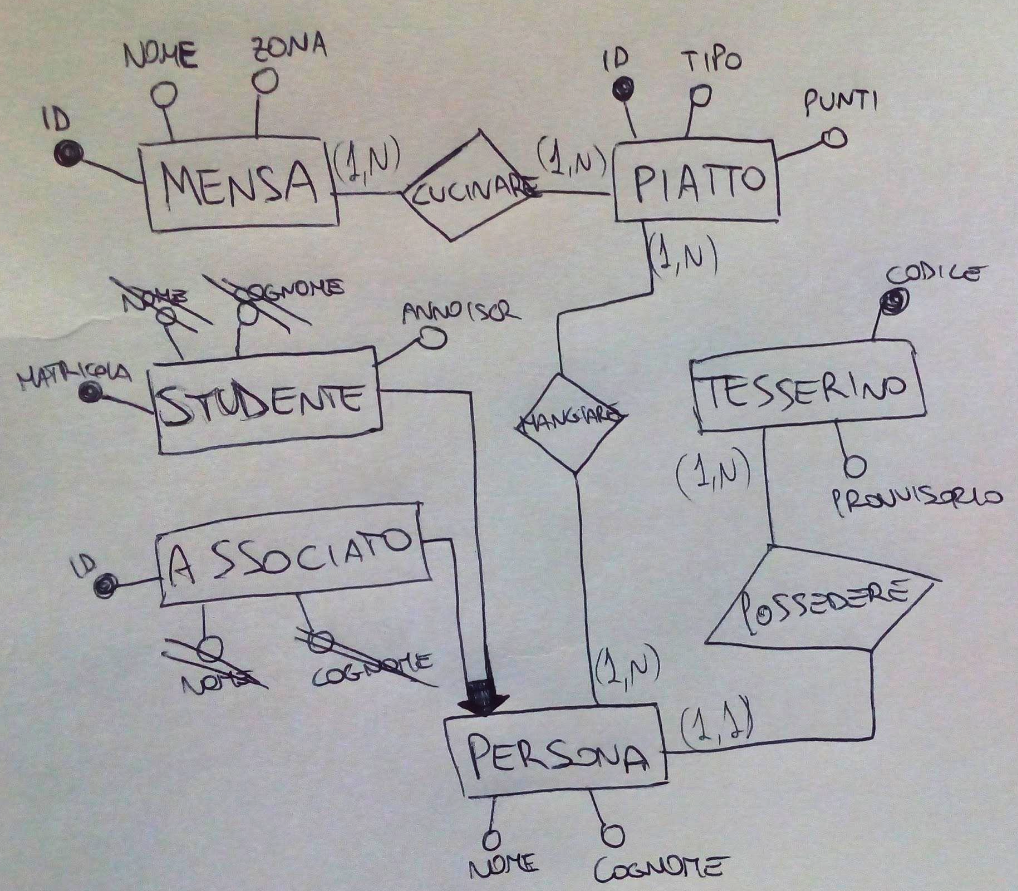 NOME
ZONA
ID
MENSA
(1,N)
CUCINARE
(1,N)
ID
TIPO
PUNTI
PIATTO
(1,N)
NOME
COGNOME
ANNOISCR
MATRICOLA
STUDENTE
MANGIARE
CODICE
TESSERINO
(1,N)
PROVVISORIO
ID
ASSOCIATO
NOME
COGNOME
POSSEDERE
(1,N)
(1,1)
PERSONA
NOME
COGNOME